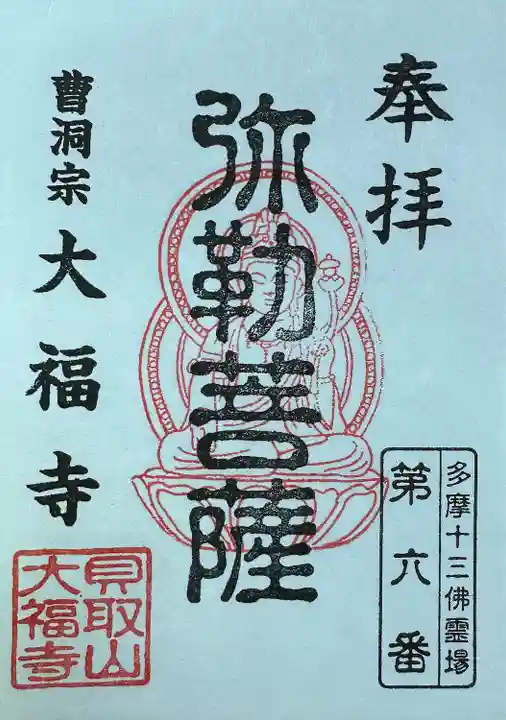 奉拝
多摩十三佛霊場
第六番
弥勒菩薩
曹洞宗 大福寺
貝取山
大福寺